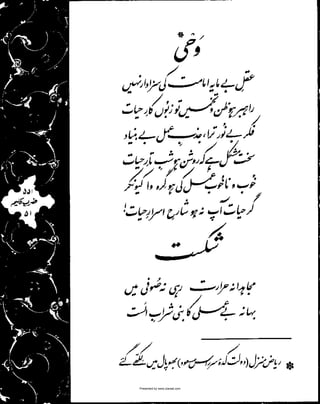 وحی *
عقلِ بے مایہ امامت کی سزاوار نہیں
راہبر ہو ظن و تخمیں تو زبوں کارِ حیات
فکر بے نور ترا، جذبِ عمل بے بنیاد
سخت مشکل ہے کہ روشن ہو شبِ تارِ حیات
خوب و ناخوب عمل کی ہو گرہ وا کیونکر
گر حیات آپ نہ ہو شارحِ اسرارِ حیات!
شکست
مجاہدانہ حرارت رہی نہ صوفی میں
بہانہ بے عملی کا بنی شرابِ الست
* ریاض منزل (دولت کدۂ سر راس مسعود) بھوپال میں لکھے گئے
۵۵۱
ضربِ کلیم
۵۱
Presented by www.ziaraat.com